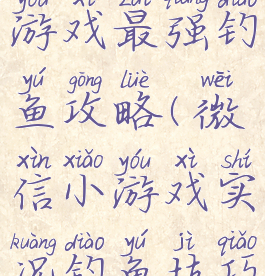 yóu xì zuì qiáng diào
游戏最强钓
yú gōng lüè wēi
鱼攻略(微
xìn xiǎo yóu xì shí
信小游戏实
kuàng diào yú jì qiǎo
况钓鱼技巧